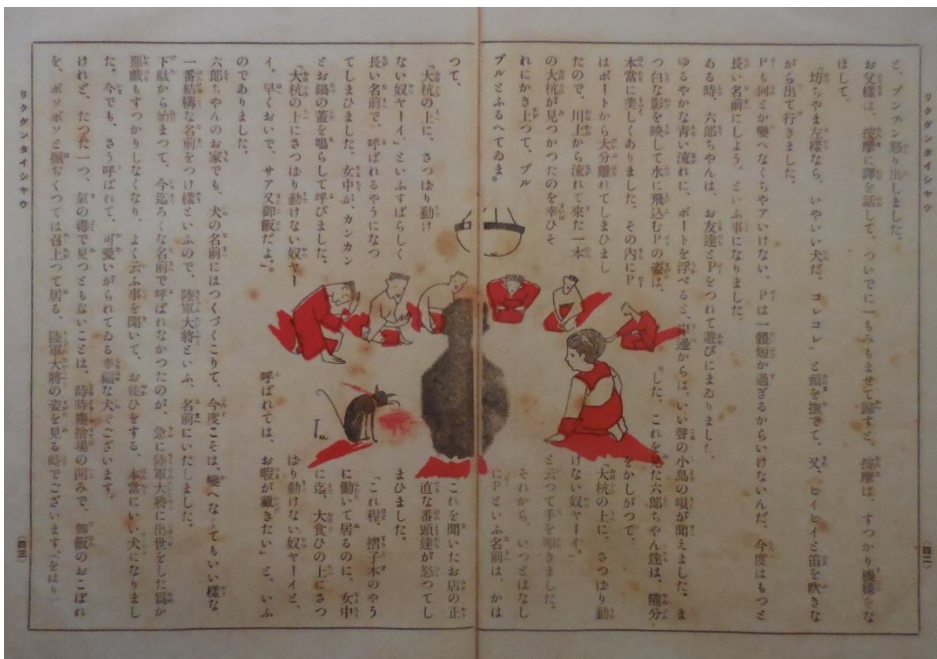 リクグンタイシヤウ
(四二)
と、プンプン怒り出しました。
お父様は、按摩に譯を話して、ついでに一もみもませて歸すと、按摩は、すつかり機嫌をな
ほして、
「坊ちやま左樣なら、いやいい犬だ、コレコレ」と頭を撫でて、又、ヒイヒイと笛を吹きな
がら出て行きました。
Pも何とか變へなくちやアいけない、Pは一體短か過ぎるからいけないんだ、今度はもつと
長い名前にしよう、といふ事になりました。
ある時、六郎ちやんは、お友達とPをつれて遊びにまゐりました。
ゆるやかな青い流れに、ボートを浮べると、岸邊からは、いい聲の小鳥の唄が聞えました。ま
つ白な影を映して水に飛込むPの姿は、
本當に美しくありました。その内にP
はボートから大分離れてしまひまし
たので、川上から流れて來た一本
の大杭が見つかつたのを幸ひそ
れにかき上つて、ブル
ブルとふるへてゐま
した。これを見た六郎ちやん達は、隨分
をかしがつて、
「大杭の上に、さつぱり動
けない奴ヤーイ。」
と云つて手を叩きました。
それから、いつとはなし
にPといふ名前は、かは
つて、
「大杭の上に、さつぱり動け
ない奴ヤーイ。」といふすばらしく
長い名前で、呼ばれるやうになつ
てしまひました。女中が、カンカン
とお鍋の蓋を鳴らして呼びました。
「大杭の上にさつぱり動けない奴ヤー
イ、早くおいで、サア又御飯だよ。」
これを聞いたお店の正
直な番頭達が怒つてし
まひました。
「これ程、摺子木のやう
に働いて居るのに、女中
に迄、大食ひの上にさつ
ぱり動けない奴ヤーイと、
呼ばれては、お暇が戴きたい」と、いふ
のでありました。
六郎ちやんのお家でも、犬の名前にはつくづくこりて、今度こそは、變へなくてもいい樣な
一番結構な名前をつけ樣といふので、陸軍大將といふ、名前にいたしました。
下駄から始まつて、今迄ろくな名前で呼ばれなかつたのが、急に陸軍大將に出世をした爲か
惡戯もすつかりしなくなり、よく云ふ事を聞いて、お使ひをする、本當にいい犬になりまし
た。今でも、さう呼ばれて、可愛いがられてゐる幸福な犬でございます。
けれど、たつた一つ、氣の毒で見つともないことは、時時塵捨場の凹みで、御飯のおこぼれ
を、ボソボソと掘だくつては召上つて居る、陸軍大將の姿を見る時でございます。(をはり)
リクグンタイシヤウ
(四三)